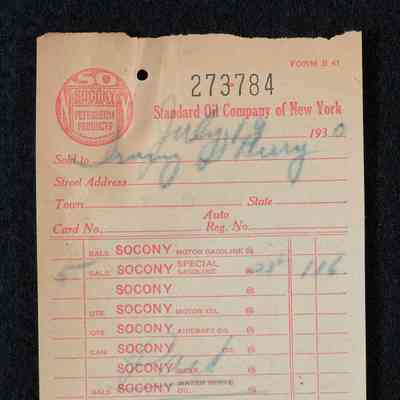 FORM B 41
SO
SOCONY
PETROLEUM
PRODUCTS
273784
Standard Oil Company of New York
July 19 1930
Sold to
Street Address
Town State
Card No. Auto Reg. No.
GALS. SOCONY MOTOR GASOLINE @
5 GALS. SOCONY SPECIAL GASOLINE @ 1 16
SOCONY @
QTS. SOCONY MOTOR OIL @
QTS. SOCONY AIRCRAFT OIL @
CAN SOCONY OIL @
SOCONY @
GALS. SOCONY OIL @